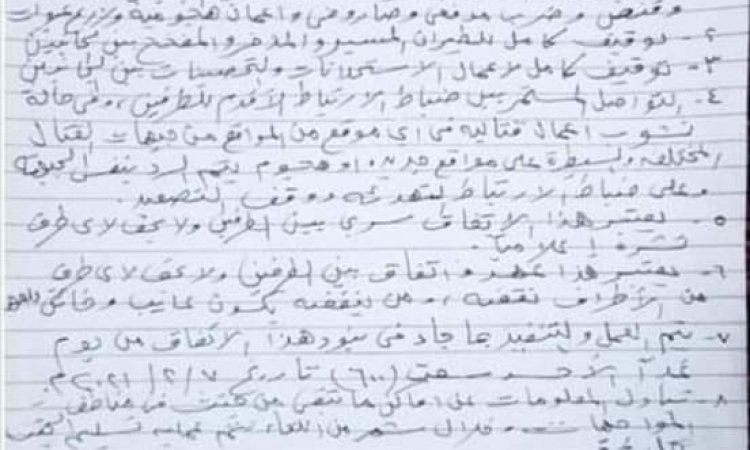 وقنص وضرب مدفعي وصاروخي واعمال هجومية وزرع عبوات
٢- توقيف كامل للطيران المسير والمذخر والمفخخ بين الجانبين
٣- توقيف كامل لاعمال الاستحداثات والتحصينات بين الجانبين
٤- التواصل المستمر بين ضباط الارتباط الأقدم للطرفين، وفي حالة
نشوب اعمال قتاليه في اي موقع من المواقع من جبهات القتال
المختلفه والسيطرة على مواقع جديده او هجوم يتم الرد بنفس
وعلى ضباط الارتباط لتهدئه ووقف التصعيد.
٥- يعتبر هذا الاتفاق سري بين الطرفين ولا يحق لاي طرف
نشرة إعلامياً.
٦- يعتبر هذا عهد واتفاق بين الطرفين ولا يحق لاي طرف
من الأطراف نقضه، ومن ينقضه يكون عايب وخائن
٧- يتم العمل والتنفيذ بما جاء في بنود هذا الاتفاق من يوم
غدآ الأحد (٦٠٠) تاريخ ٢٠٢١/٢/٧م.
٨- تبادل المعلومات عن اماكن ما تبقى من جثث في مناطق
المواجهات وخلال شهر من اللقاء يتم عمليه تسليم